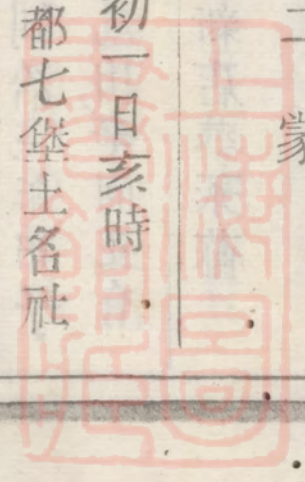 蒙
初一日亥時
都七堡土名社
上海圖書館藏